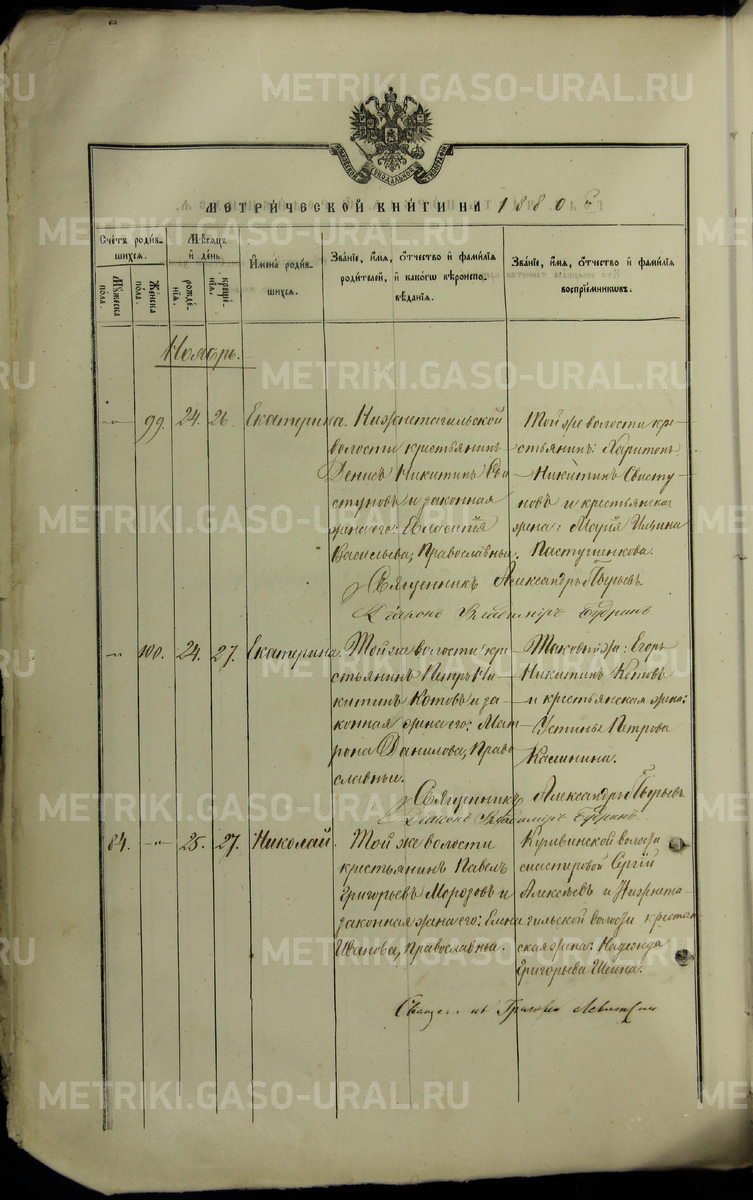 METRIKI.GASO-URAL.RU
МЕТРИЧЕСКОЙ КНИГИ НА 1880 г.
Счетъ родившихся.
Мужеска пола.
Женска пола.
Мѣсяцъ и день.
рожденія.
крещенія.
Имена родившихся.
Званіе, имя, отчество и фамилія родителей, и какогѡ вѣроисповѣданія.
Званіе, имя, отчество и фамилія воспріемниковъ.
Ноябрь.
99. 24. 26. Екатерина.
Нижнетагильской
волости крестьянинъ
Денисъ Никитинъ
и законная
жена его:
Васильева, Православные.
Той же волости кре-
стьянинъ: Харитонъ
Никитинъ Свасту
новъ и крестьянская
жена: Марія Ильина
Пастушенкова.
Священникъ Александръ
Діаконъ Владиміръ
100. 24. 27. Екатерина.
Той же волости кре
стьянинъ Петръ Ни
китинъ Котовъ и за
конная жена его: Мат
рона Данилова, Право
славные.
Таковый же: Егоръ
Никитинъ Котовъ
и крестьянская жена:
Устинья Петрова
Калинина.
Священникъ Александръ
Діаконъ Владиміръ
84. 25. 27. Николай.
Той же волости
крестьянинъ Павелъ
Григорьевъ Морозовъ и
законная жена его: Елена
Иванова, Православные.
Кушвинской волости
мастеровой Сергій
Алексѣевъ и Нижнета-
гильской волости крестьян
ская жена: Надежда
Григорьева Шеина.
Григорій Левитскій